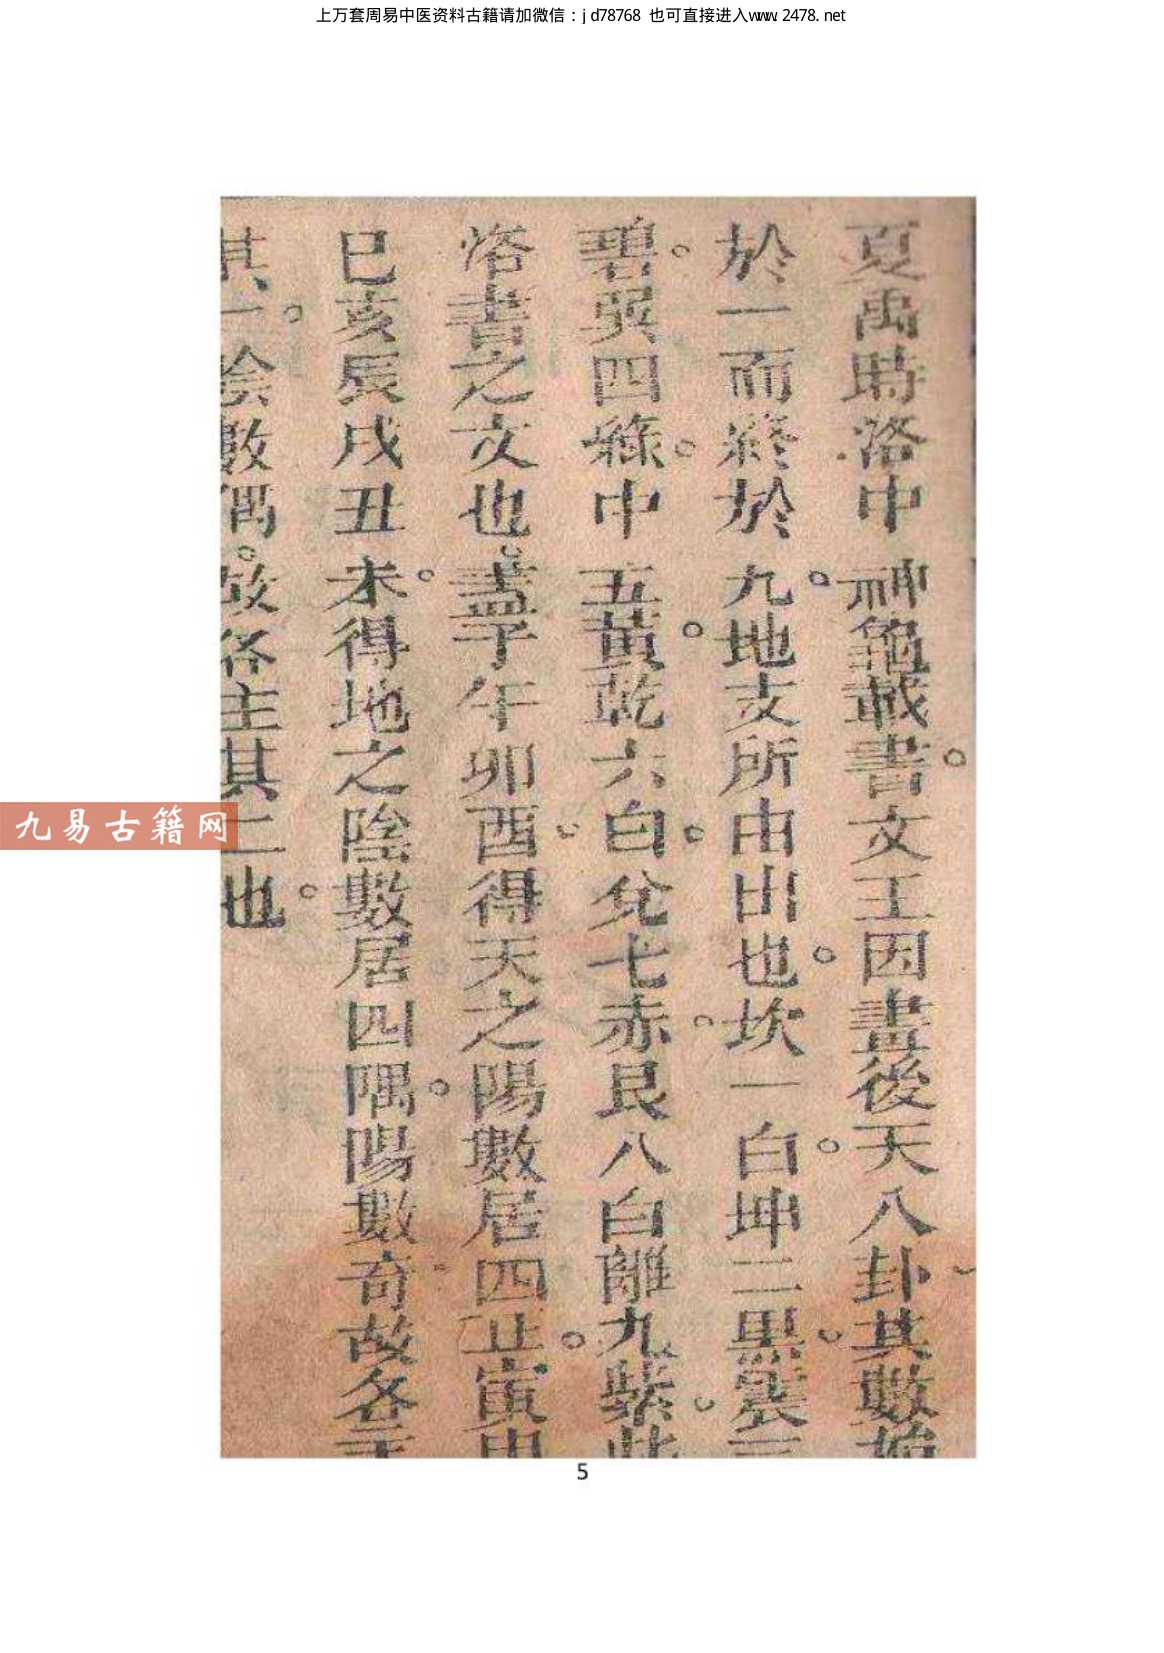 上万套周易中医资料古籍请加微信：jd78768 也可直接进入www.2478.net
夏禹時洛中神龜載書。文王因畫後天八卦。其數始
於一而終於九。地支所由出也。坎一白。坤二黑。震三
碧。巽四綠。中五黃。乾六白。兌七赤。艮八白離九紫。此
洛書之文也。蓋子午卯酉。得天之陽數居四正。寅申
巳亥辰戌丑未。得地之陰數居四隅。陽數奇。故各主
其一。陰數偶。故各主其二也。
九易古籍网
5